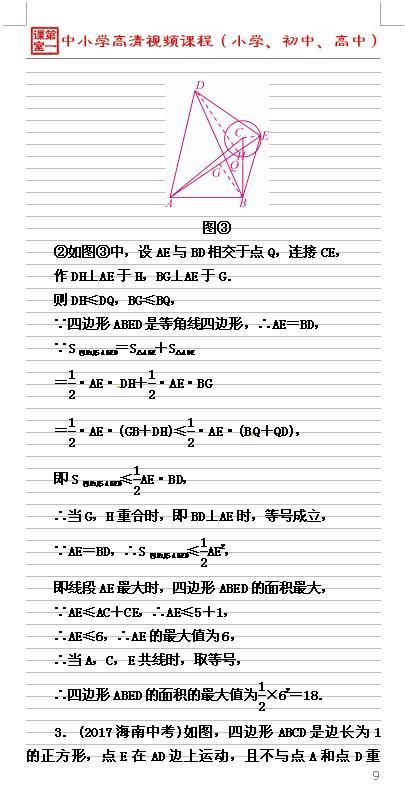 课第
室一
中小学高清视频课程（小学、初中、高中）
D
C
E
H
Q
G
A
B
图③
②如图③中，设AE与BD相交于点Q，连接CE，
作DH⊥AE于H，BG⊥AE于G．
则DH≤DQ，BG≤BQ，
∵四边形ABED是等角线四边形，∴AE=BD，
∵S四边形ABED=S△ABE+S△ADE
=1/2·AE·DH+1/2·AE·BG
=1/2·AE·(GB+DH)≤1/2·AE·(BQ+QD)，
即S四边形ABED≤1/2AE·BD，
∴当G，H重合时，即BD⊥AE时，等号成立，
∵AE=BD，∴S四边形ABED≤1/2AE²，
即线段AE最大时，四边形ABED的面积最大，
∵AE≤AC+CE，∴AE≤5+1，
∴AE≤6，∴AE的最大值为6，
∴当A，C，E共线时，取等号，
∴四边形ABED的面积的最大值为1/2×6²=18．
3．(2017海南中考)如图，四边形ABCD是边长为1
的正方形，点E在AD边上运动，且不与点A和点D重
9